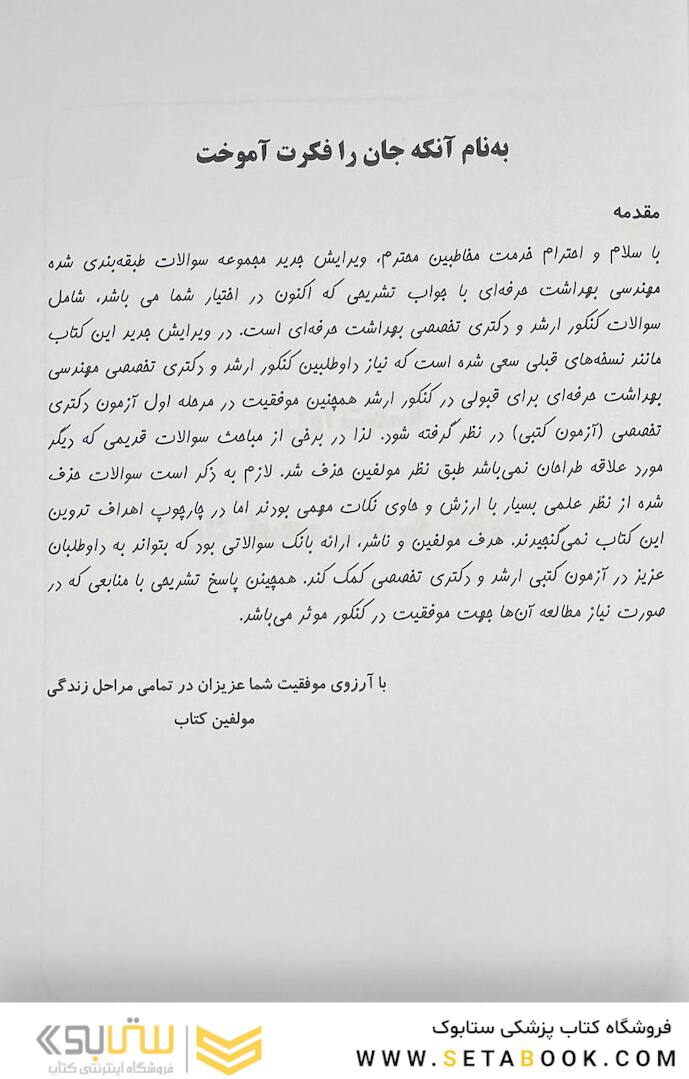 به‌نام آنکه جان را فکرت آموخت
مقدمه
با سلام و احترام خدمت مخاطبین محترم، ویرایش جدید مجموعه سوالات طبقه‌بندی شده
مهندسی بهداشت حرفه‌ای با جواب تشریحی که اکنون در اختیار شما می باشد، شامل
سوالات کنکور ارشد و دکتری تخصصی بهداشت حرفه‌ای است. در ویرایش جدید این کتاب
مانند نسخه‌های قبلی سعی شده است که نیاز داوطلبین کنکور ارشد و دکتری تخصصی مهندسی
بهداشت حرفه‌ای برای قبولی در کنکور ارشد همچنین موفقیت در مرحله اول آزمون دکتری
تخصصی (آزمون کتبی) در نظر گرفته شود. لذا در برخی از مباحث سوالات قدیمی که دیگر
مورد علاقه طراحان نمی‌باشد طبق نظر مولفین حذف شد. لازم به ذکر است سوالات حذف
شده از نظر علمی بسیار با ارزش و حاوی نکات مهمی بودند اما در چارچوپ اهداف تدوین
این کتاب نمی‌گنجیدند. هدف مولفین و ناشر، ارائه بانک سوالاتی بود که بتواند به داوطلبان
عزیز در آزمون کتبی ارشد و دکتری تخصصی کمک کند. همچینن پاسخ تشریحی با منابعی که در
صورت نیاز مطالعه آن‌ها جهت موفقیت در کنکور موثر می‌باشد.
با آرزوی موفقیت شما عزیزان در تمامی مراحل زندگی
مولفین کتاب
فروشگاه کتاب پزشکی ستابوک
WWW.SETABOOK.COM
ستابوک
فروشگاه اینترنتی کتاب